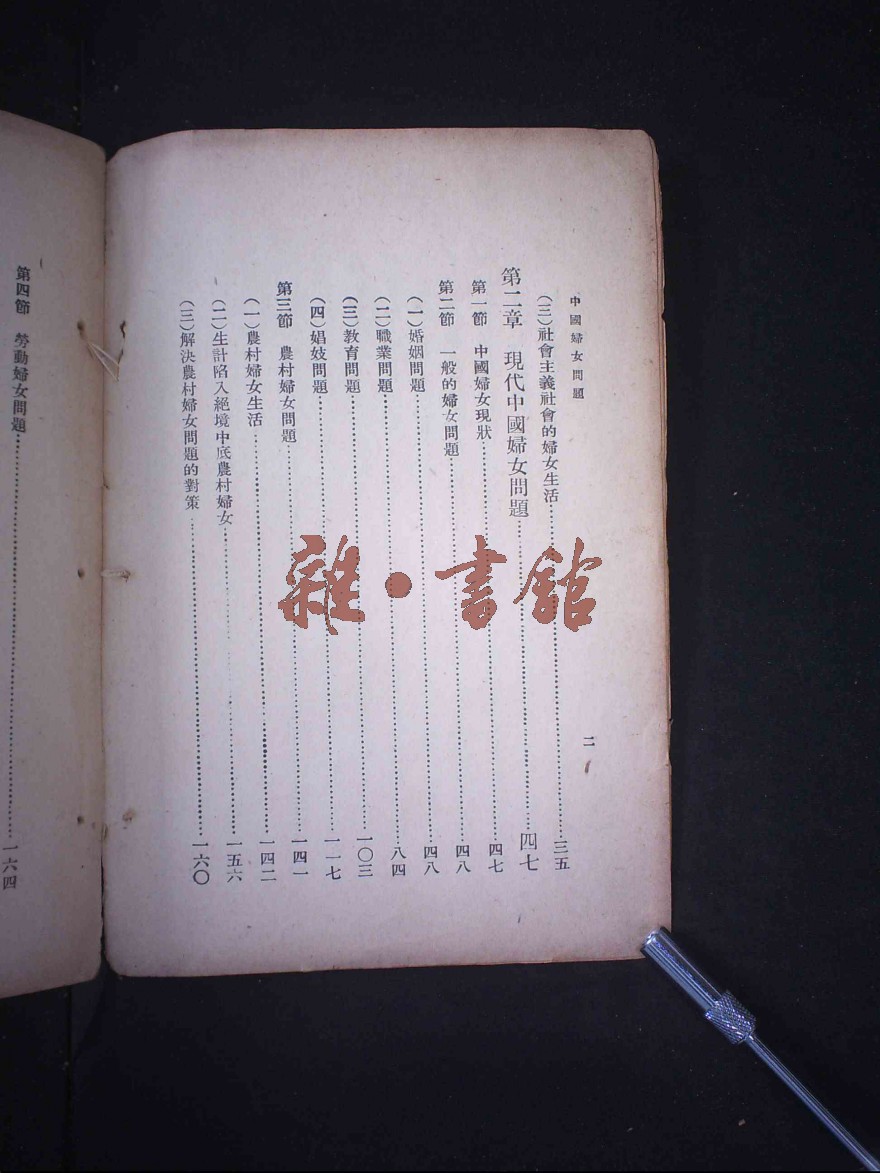 中國婦女問題
二
（三）社會主義社會的婦女生活……三五
第二章　現代中國婦女問題……四七
第一節　中國婦女現狀……四七
第二節　一般的婦女問題……四八
（一）婚姻問題……四八
（二）職業問題……八四
（三）教育問題……一〇三
（四）娼妓問題……一一七
第三節　農村婦女問題……一四一
（一）農村婦女生活……一四二
（二）生計陷入絕境中底農村婦女……一五六
（三）解決農村婦女問題的對策……一六〇
第四節　勞動婦女問題……一六四
雜·書館